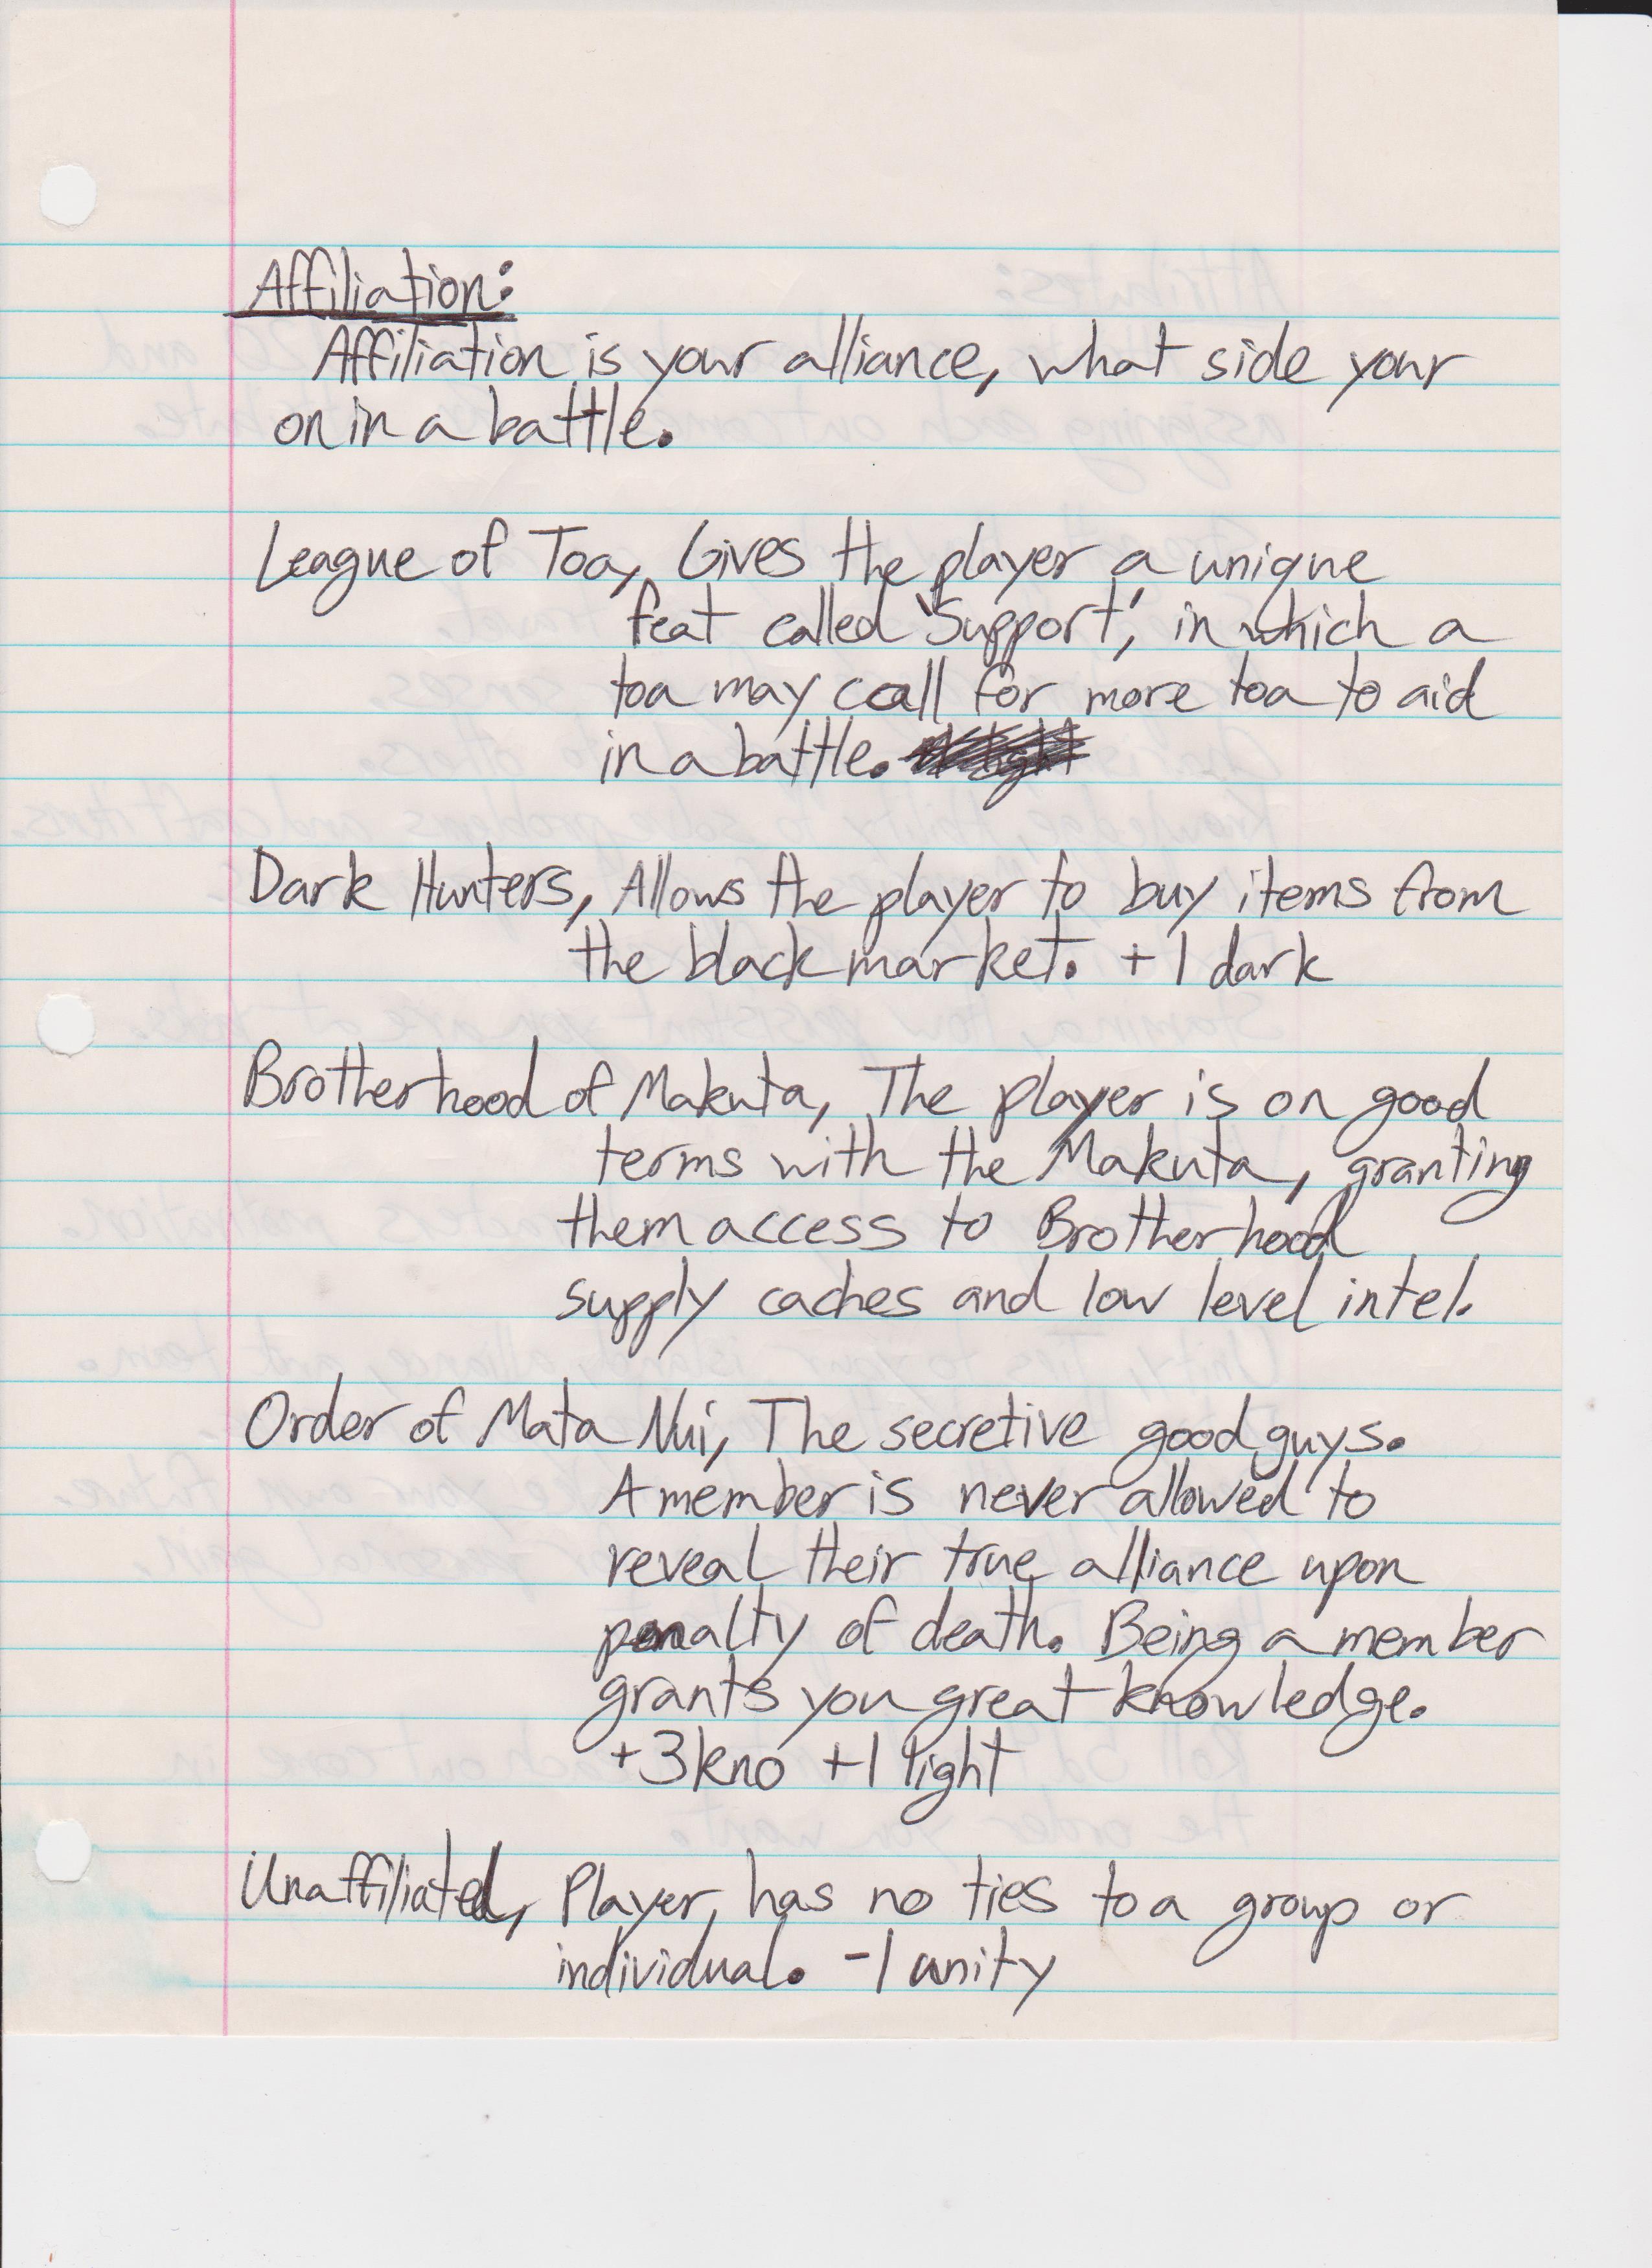 Affiliation:
Affiliation is your alliance, what side your
on in a battle.
League of Toa, Gives the player a unique
feat called "Support", in which a
toa may call for more toa to aid
in a battle.
Dark Hunters, Allows the player to buy items from
the black market. +1 dark
Brotherhood of Makuta, The player is on good
terms with the Makuta, granting
them access to Brotherhood
supply caches and low level intel.
Order of Mata Nui, The secretive good guys.
A member is never allowed to
reveal their true alliance upon
penalty of death. Being a member
grants you great knowledge.
+3 kno +1 light
Unaffiliated, Player, has no ties to a group or
individual. -1 unity